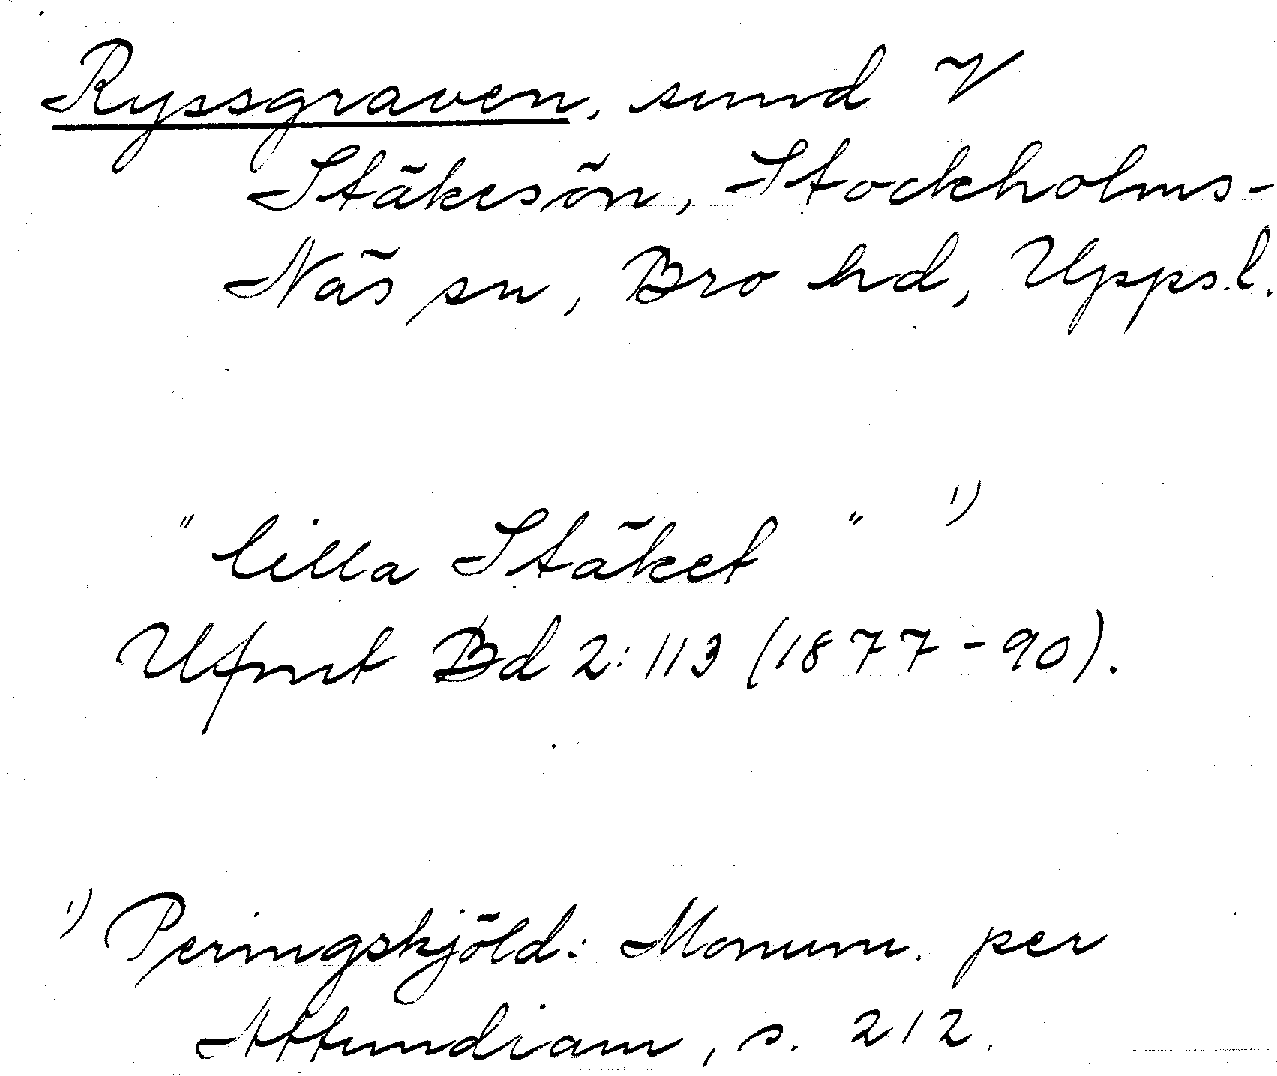 Ryssgraven, sund V
Stäkesön, Stockholms-
Näs sn, Bro hd, Uppsl.
"lilla Stäket" 1)
Ufmt Bd 2:113 (1877-90).
1) Peringskjöld: Monum. per
Attundiam, s. 212.